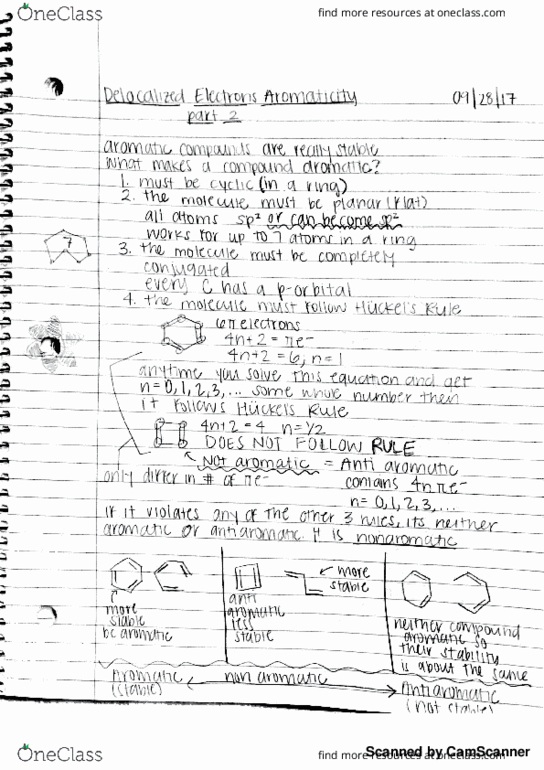 OneClass
find more resources at oneclass.com
Delocalized Electrons Aromaticity 09/28/17
part 2
aromatic compounds are really stable
What makes a compound aromatic?
1. must be cyclic (in a ring)
2. the molecule must be planar (flat)
all atoms sp² or can become sp²
works for up to 7 atoms in a ring
7
3. the molecule must be completely
conjugated
every C has a p-orbital
4. the molecule must follow Hückel's Rule
6π electrons
4n+2 = πe⁻
4n+2 = 6, n=1
anytime you solve this equation and get
n=0,1,2,3,... some whole number then
it follows Hückel's Rule
4n+2=4 n=1/2
DOES NOT FOLLOW RULE
Not aromatic = Anti aromatic
only differ in # of πe⁻ contains 4nπe⁻
n=0,1,2,3,...
if it violates any of the other 3 rules, its neither
aromatic or antiaromatic. It is nonaromatic
more
stable
bc aromatic
anti
aromatic
less
stable
more
stable
neither compound
aromatic so
their stability
is about the same
Aromatic non aromatic Antiaromatic
(stable) (not stable)
Scanned by CamScanner
OneClass
find more resources at oneclass.com